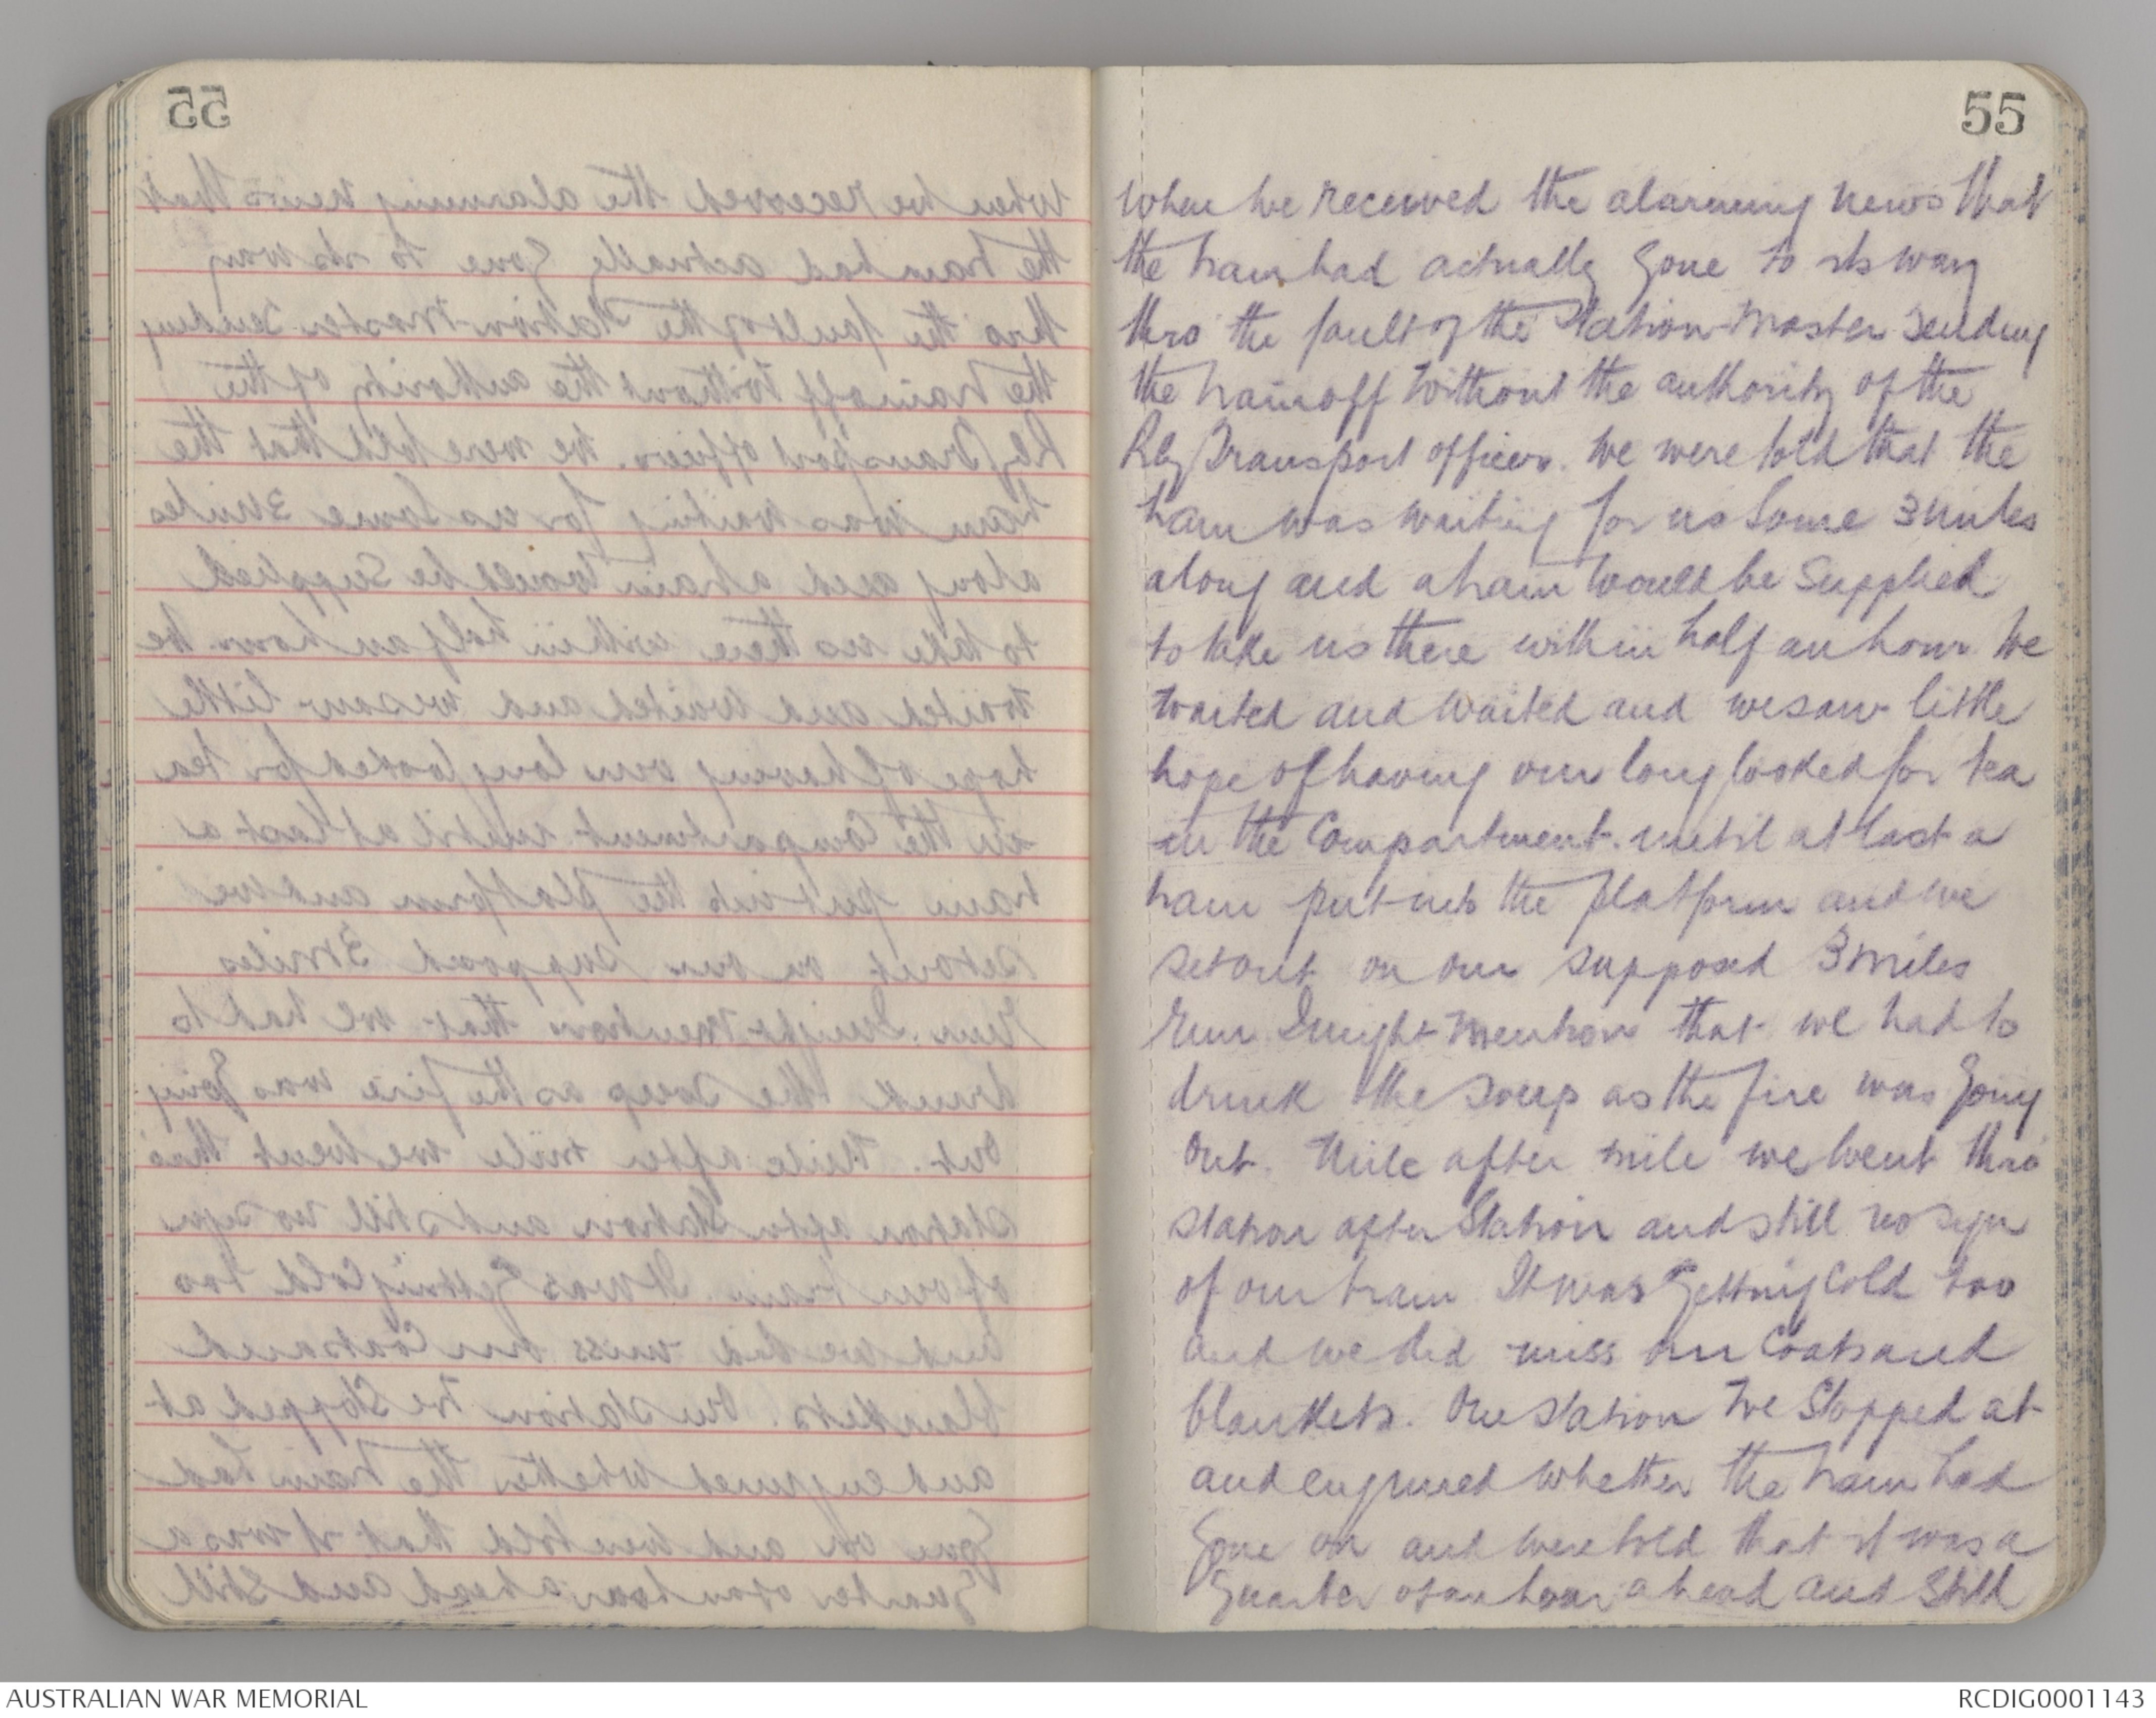 55
when we received the alarming news that
the train had actually gone to its way
thro the fault of the Station-Master sending
the train off without the authority of the
Rly Transport officer. We were told that the
train was waiting for us some 3 miles
along and a train would be supplied
to take us there within half an hour. We
waited and waited and we saw little
hope of having our long looked for tea
in the Compartment. until at last a
train put into the platform and we
set out on our supposed 3 miles
run. I might mention that we had to
drink the soup as the fire was going
out. Mile after mile we went thro
station after Station and still no sign
of our train. It was getting cold too
and we did miss our Coats and
blankets. One station we stopped at
and enquired whether the train had
gone on and were told that it was a
quarter of an hour ahead and still
AUSTRALIAN WAR MEMORIAL
RCDIG0001143